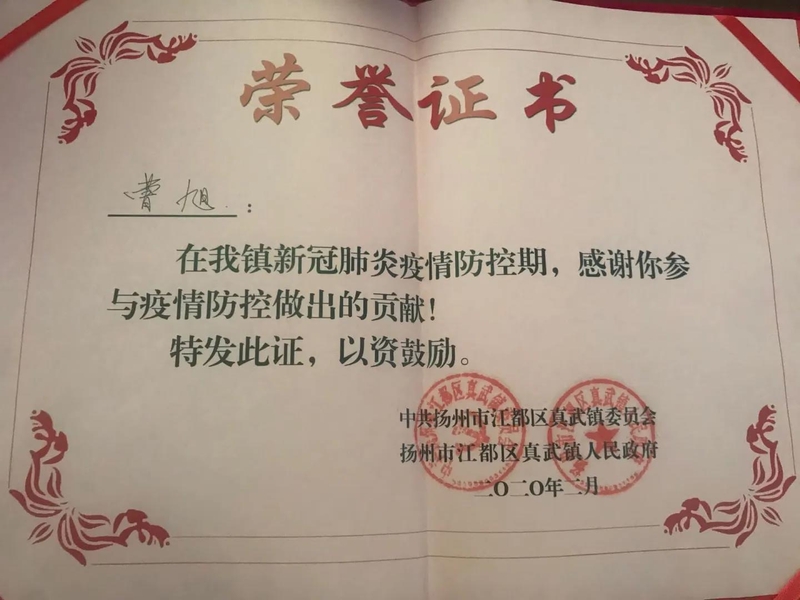 荣誉证书
曹旭：
在我镇新冠肺炎疫情防控期，感谢你参
与疫情防控做出的贡献！
特发此证，以资鼓励。
中共扬州市江都区真武镇委员会
扬州市江都区真武镇人民政府
二〇二〇年二月